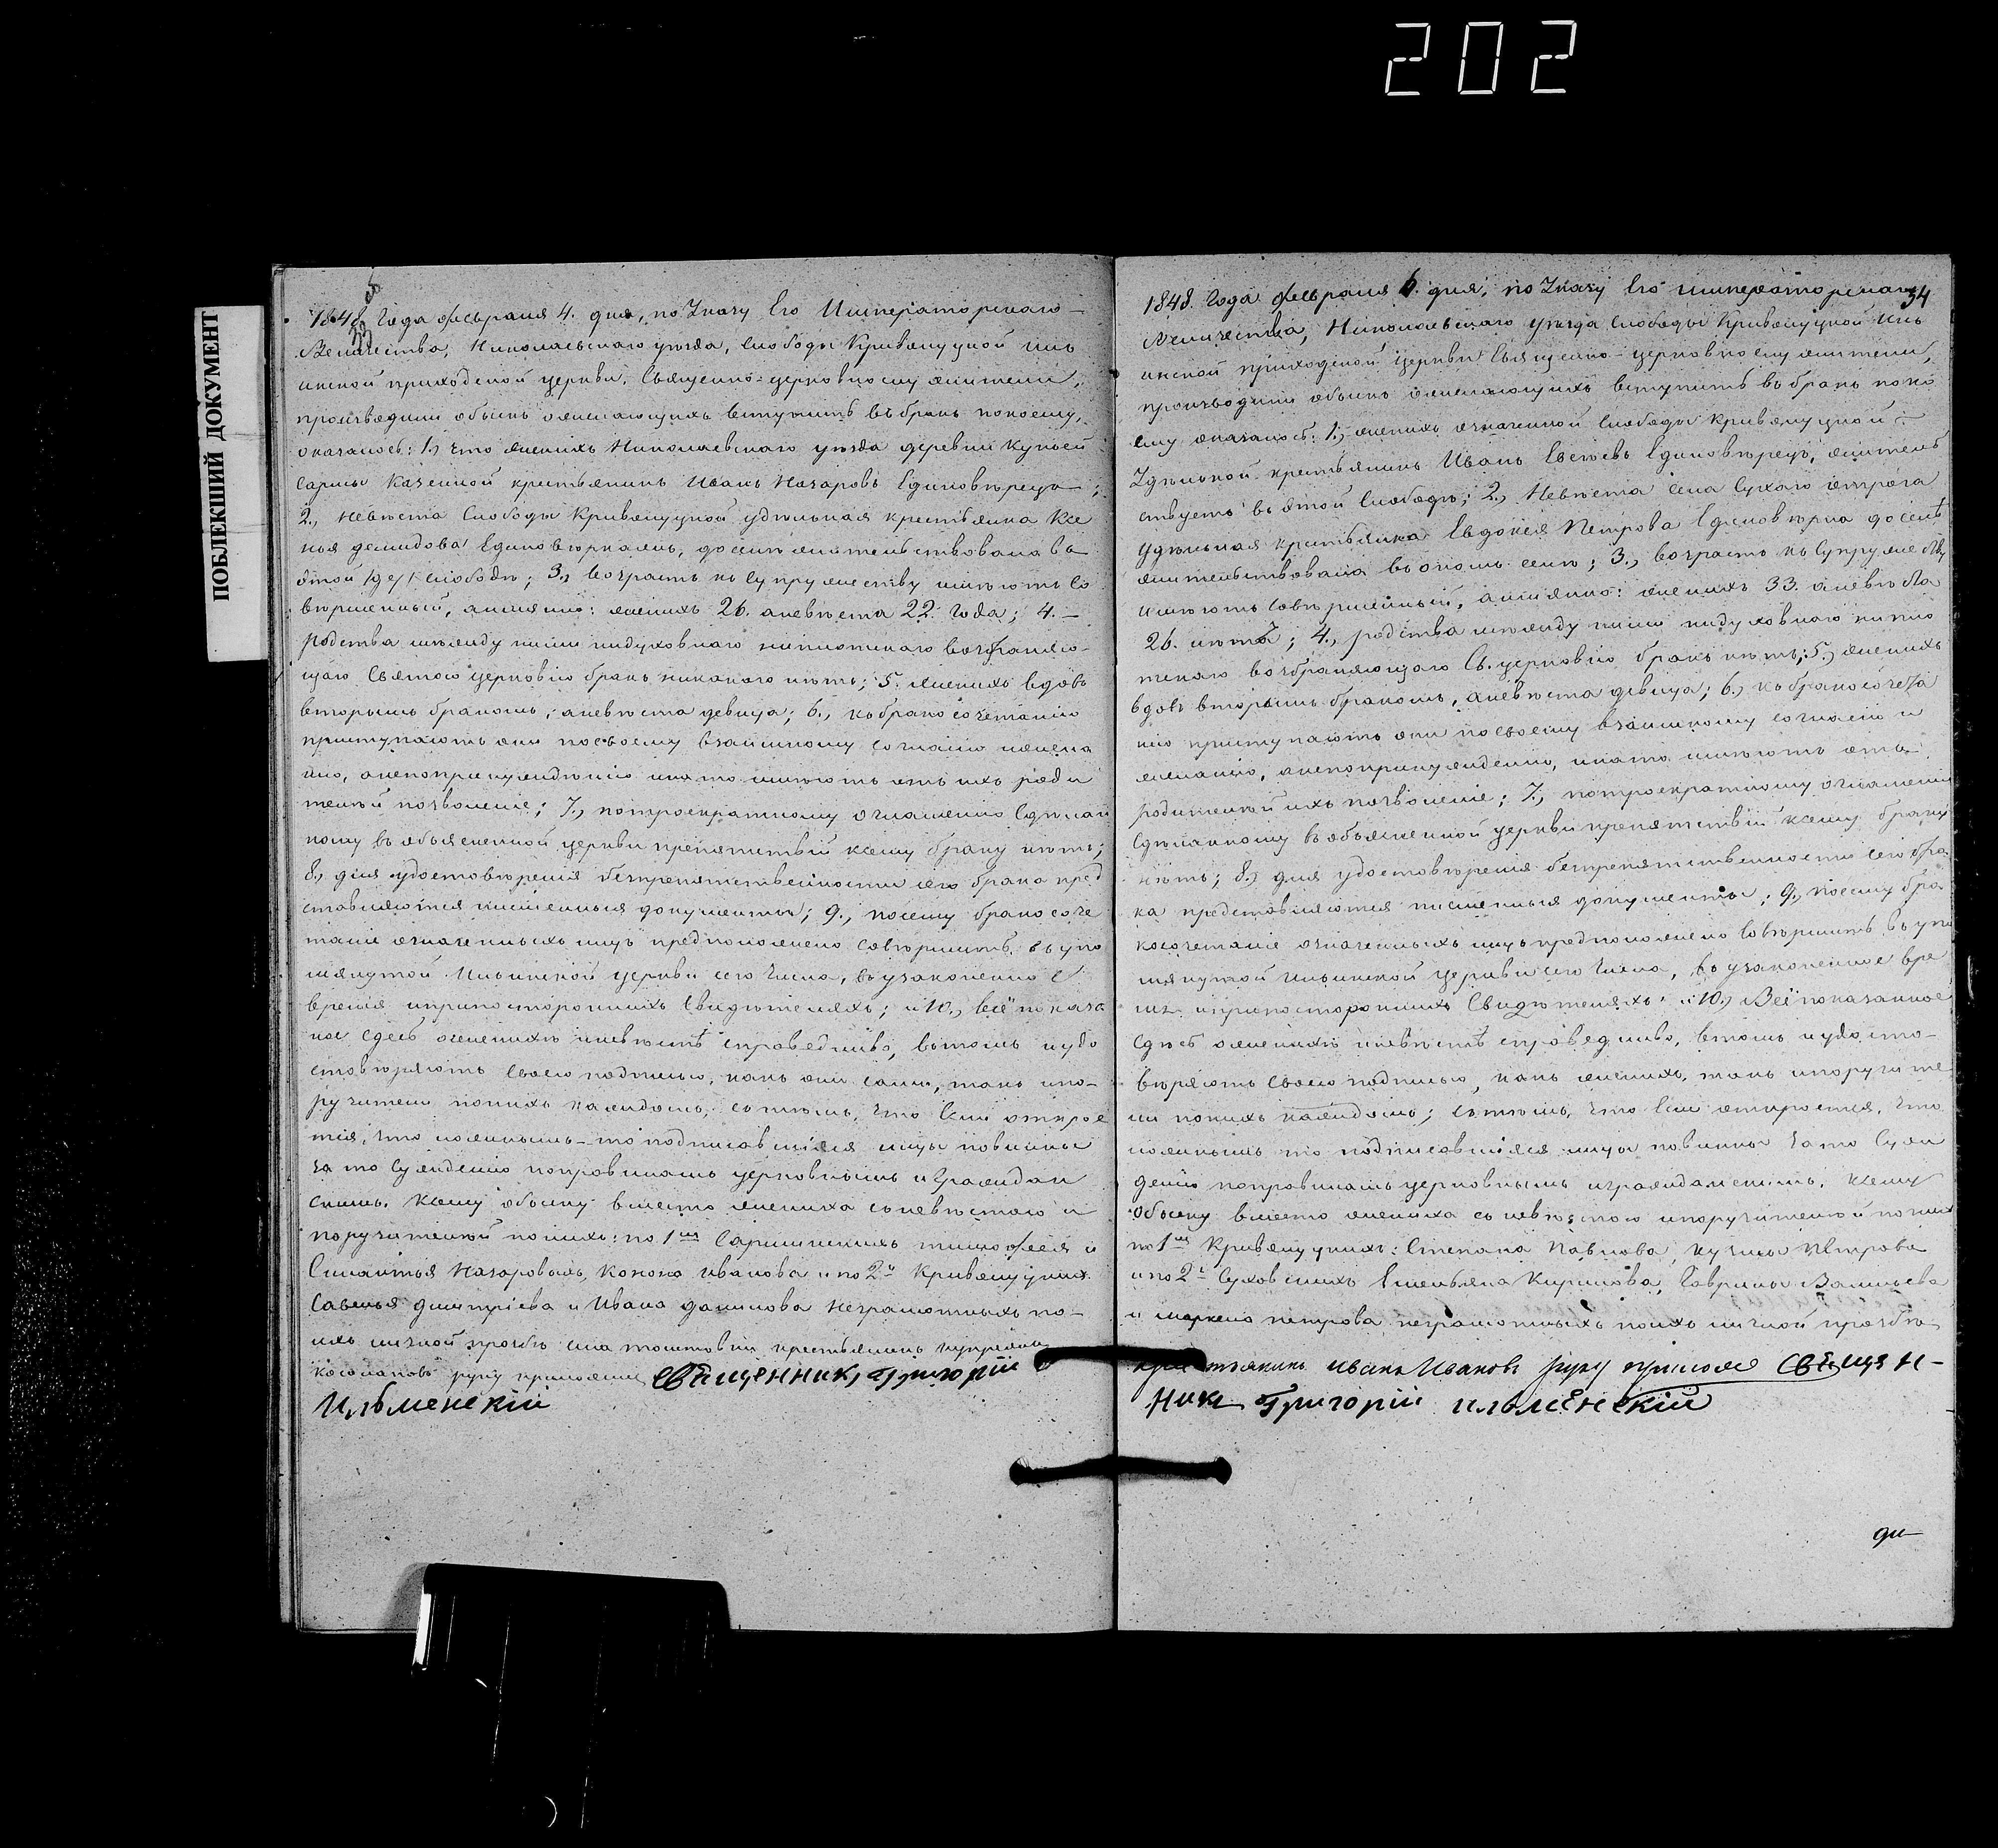 202
ПОБЛЕКШИЙ ДОКУМЕНТ
1848 Года февраля 4. дня, по Указу Его Императорскаго
Величества, Николаевскаго уезда, слободы Криволуцкой Иль
инской приходской церкви, Священно-церковно служители,
производили обыск о желающих вступить в брак по коему,
оказалось: 1., что жених Николаевскаго уезда деревни Купьей
Сармы казенной крестьянин Иван Назаров Единоверец;
2., Невеста слободы Криволуцкой удельная крестьянка Ксе
нья Демидова Единоверка, доселе жительствовала в
этой слободе; 3., Возраст к супружеству имеют со
вершенный, а именно: жених 26. а невеста 22. года; 4. –
родства между ними ни духовнаго ни плотскаго возбраняю-
щаго Святой церковию брак никакого нет; 5. жених вдов
вторым браком, а невеста девица; 6., к бракосочетанию
приступают они по своему взаимному согласию и жела
нию, а не по принуждению и на то имеют от их роди
телей позволение; 7., по троекратному оглашению сделан
ному в объявленной церкви препятствий к сему браку нет;
8., для удостоверения безпрепятственности сего брака пред
ставляются письменныя документы; 9., посему бракосоче
тание означенных лиц предположено совершить в упо
мянутой Ильинской церкви сего числа, в узаконенно е
время и при посторонних свидетелях; и 10., всё показа
ное сдесь о женихе и невесте справедливо, в том и удо
стоверяют своею подписью, как они сами, так и по-
ручители по них каждом, с тем, что если открое
тся, что ложным-то подписавшияся лицы повинны
за то суждению по правилам церковным и граждан
ским. К сему обыску вместо жениха с невестою и
поручителей по них: по 1м Сарминских Тимофея и
Силантья Назаровых, Конона Иванова и по 2й Криволуцких
Савелья Дмитриева и Ивана Данилова неграмотных по
их личной прозбе
руку приложил Священник, Григорий
Ильменский
34
1848. Года февраля 6. дня, по Указу Его Императорскаго
Величества, Николаевскаго уезда слободы Криволуцкой Иль
инской приходской церкви Священно-церковно служители,
производили обыск о желающих вступить в брак по ко
ему оказалось: 1., жених означенной слободы Криволуцкой
Удельной крестьянин Иван Евсеев Единоверец, жительст
ствует в этой слободе; 2., Невеста села Сухаго Отрога
Удельная крестьянка Евдокия Петрова Единоверка доселе
жительствовала в оном селе; 3., возраст к супружеству
имеют совершенный, а именно: жених 33. а невеста
26. лет; 4., родства между ними ни духовнаго ни пло
тскаго возбраняющаго Св. церковию брак нет; 5., жених
вдов вторым браком, а невеста девица; 6., к бракосочета
нию приступают они по своему взаимному согласию и
желанию, а не по принуждению, и на то имеют от
родителей их позволение; 7., по троекратному оглашению
сделанному в объявленной церкви препятствий к сему браку
нет; 8., для удостоверения безпрепятственности сего бра
ка представляются письменныя документы; 9., посему бра
косочетание означенных лиц предположено совершить в упо
мянутой Ильинской церкви сего числа, в узаконенное вре
мя и при посторонних свидетелях; и 10., Всё показанное
сдесь о женихе и невесте справедливо, в том и удосто-
веряют своею подписью, как жених, так и поручите
ли по них каждом; с тем, что если откроется, что
ложным то подписавшияся лицы повинны за то суж
дению по правилам церковным и гражданским. К сему
обыску вместо жениха с невестою и поручителей по них
по 1м Криволуцких: Степана Павлова, Кузьмы Петрова
и по 2й Суховских Емельяна Кирилова, Гаврилы Васильева
и Маркела Петрова неграмотных по их личной прозбе
крестьянин Иван Иванов руку приложил Священ-
ник Григорий Ильменский